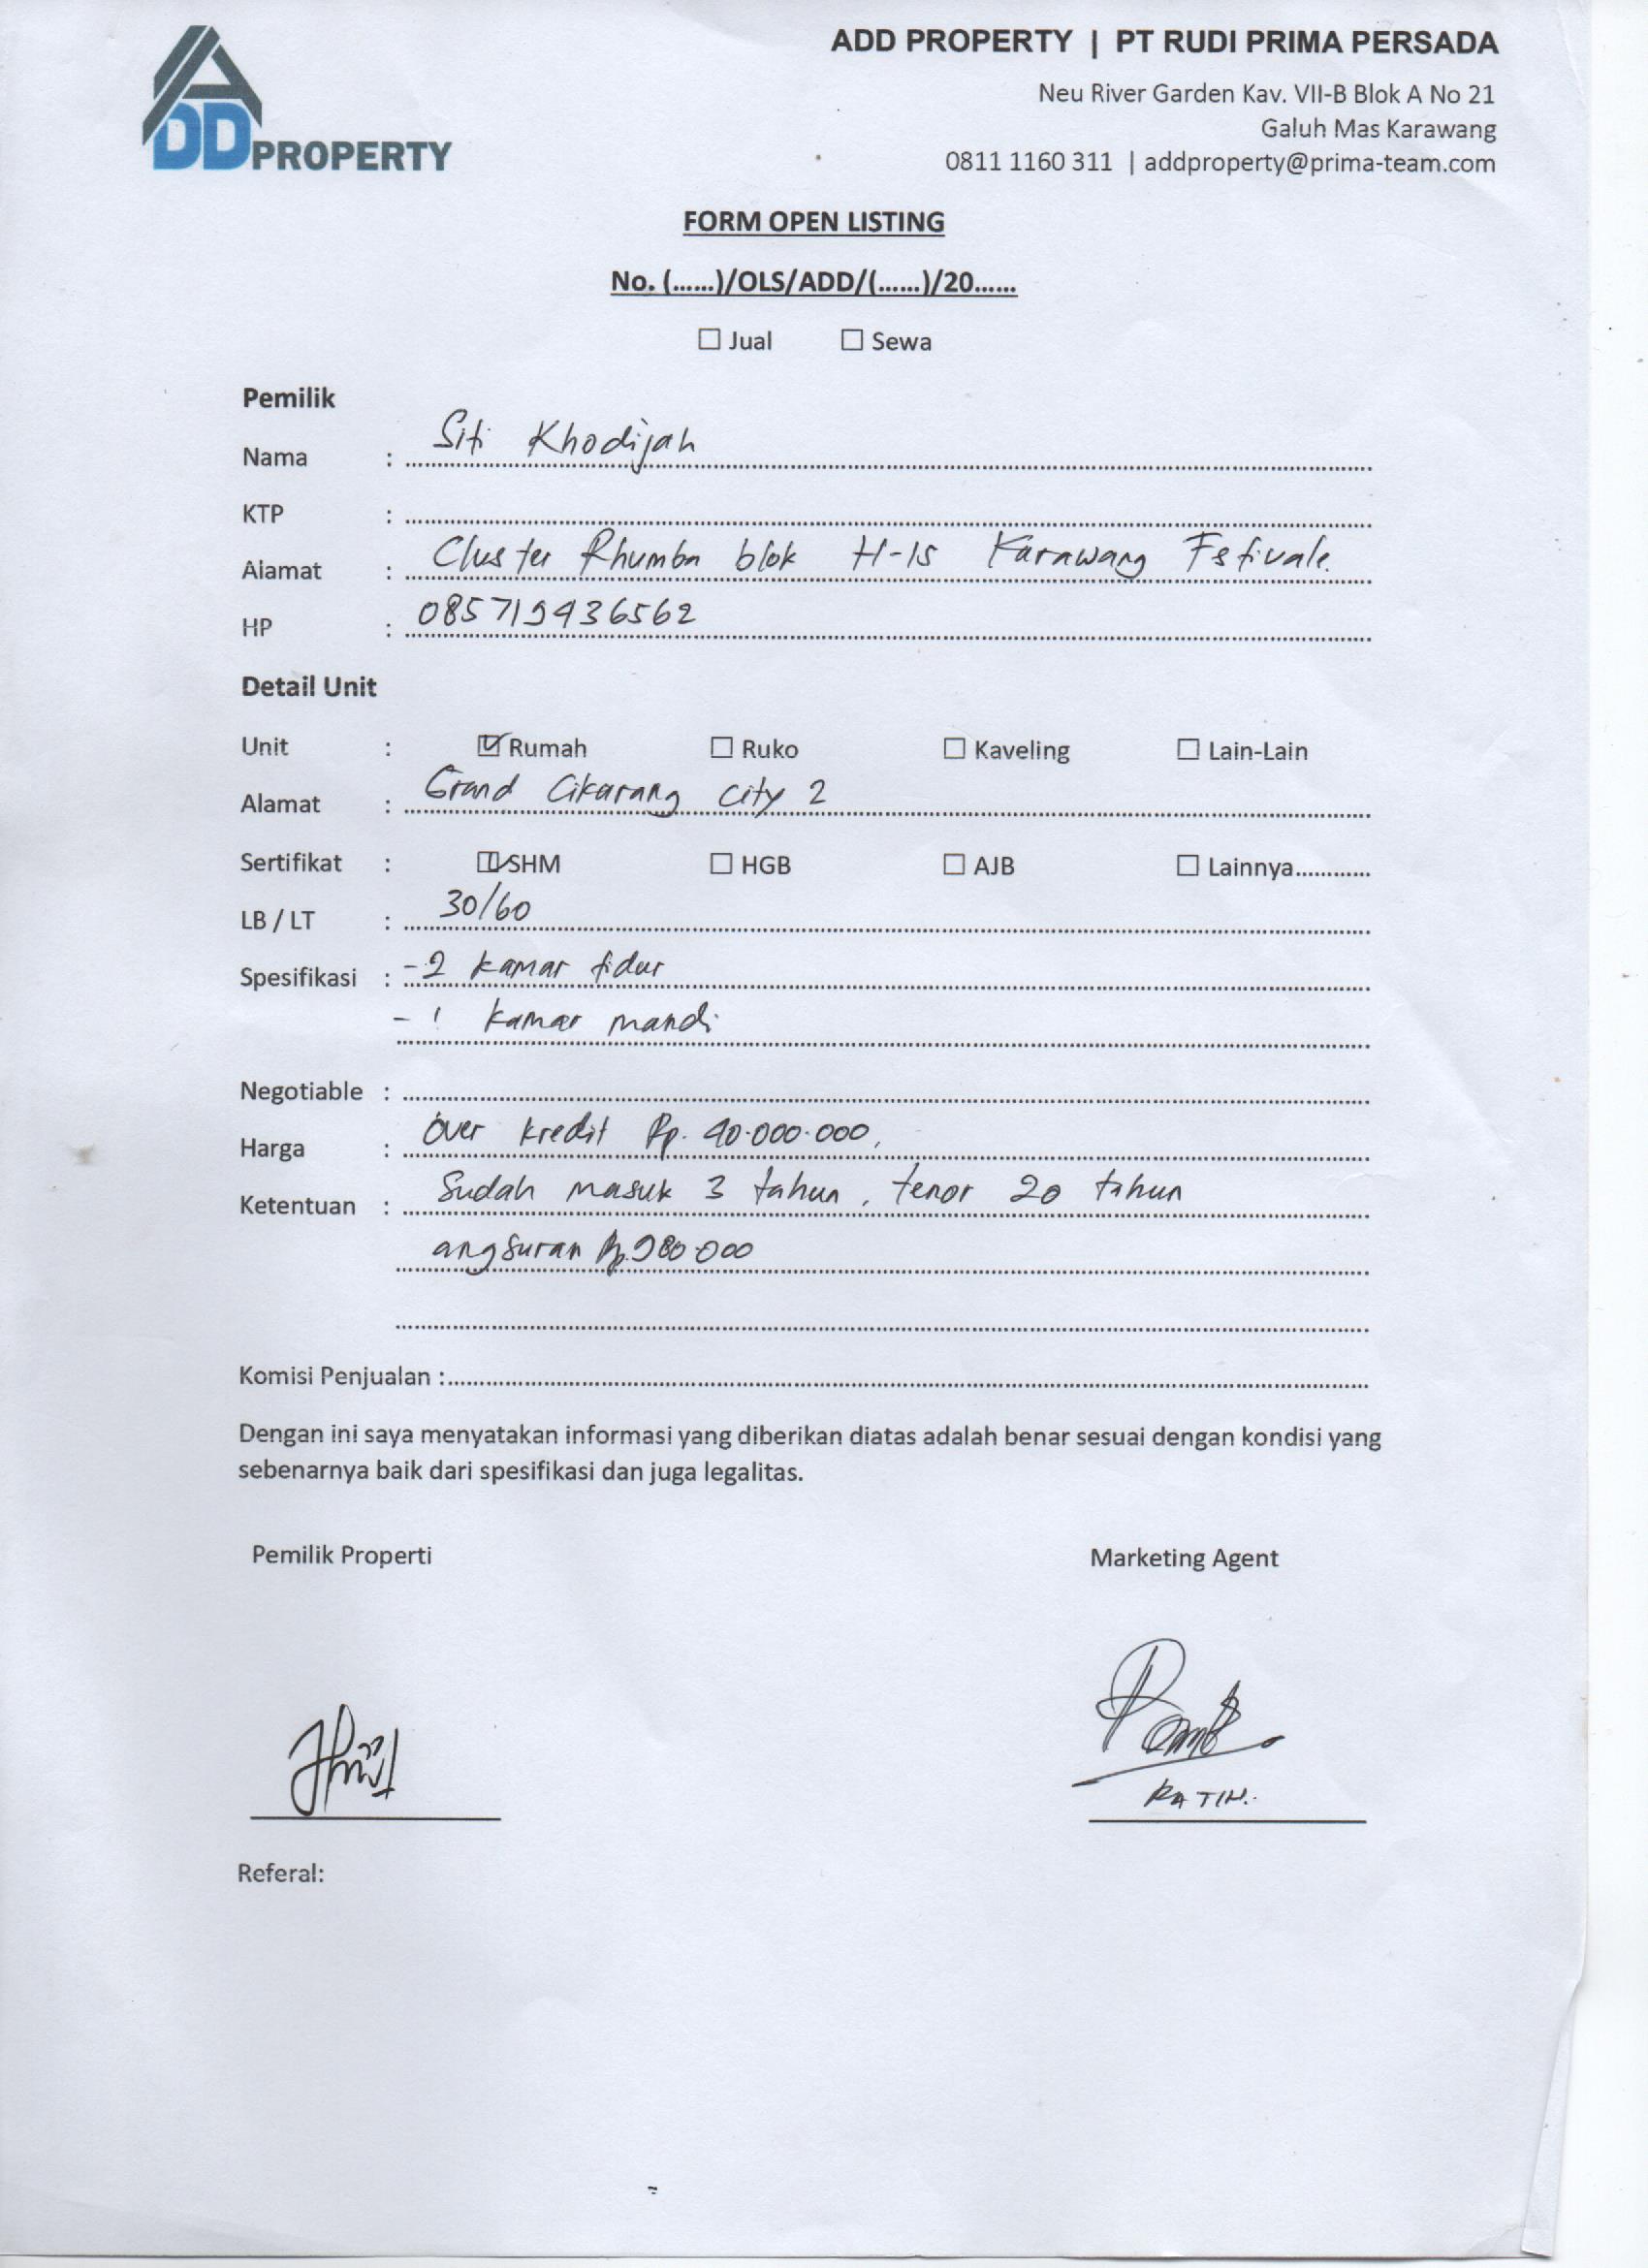 ADD PROPERTY
ADD PROPERTY | PT RUDI PRIMA PERSADA
Neu River Garden Kav. VII-B Blok A No 21
Galuh Mas Karawang
0811 1160 311 | addproperty@prima-team.com
FORM OPEN LISTING
No. (......)/OLS/ADD/(......)/20......
☐ Jual ☐ Sewa
Pemilik
Nama : Siti Khodijah
KTP :
Alamat : Cluster Rhumba blok H-15 Karawang Fstivale.
HP : 085719436562
Detail Unit
Unit : ☑ Rumah ☐ Ruko ☐ Kaveling ☐ Lain-Lain
Alamat : Grand Cikarang City 2
Sertifikat : ☑ SHM ☐ HGB ☐ AJB ☐ Lainnya............
LB / LT : 30/60
Spesifikasi : - 2 kamar tidur
- 1 kamar mandi
Negotiable :
Harga : Over kredit Rp. 40.000.000,
Ketentuan : Sudah masuk 3 tahun, tenor 20 tahun
angsuran Rp.980.000
Komisi Penjualan :
Dengan ini saya menyatakan informasi yang diberikan diatas adalah benar sesuai dengan kondisi yang
sebenarnya baik dari spesifikasi dan juga legalitas.
Pemilik Properti Marketing Agent
RATIH.
Referal: